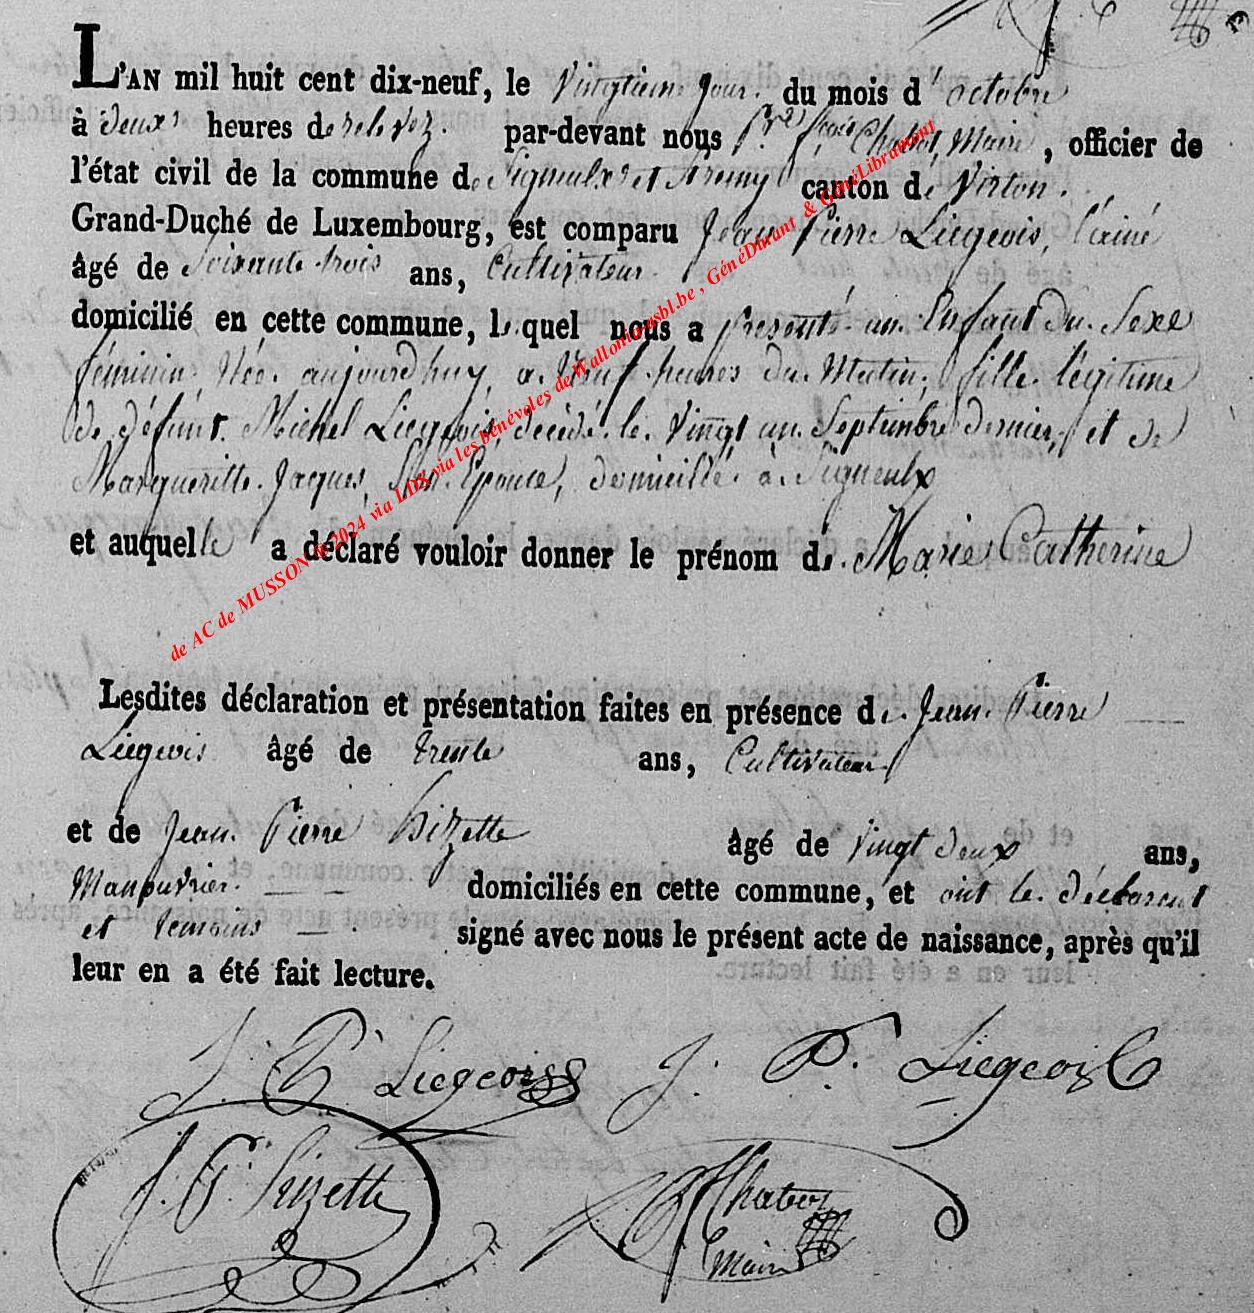 L'AN mil huit cent dix-neuf, le Vingtieme jour du mois d'octobre
à deux heures de relevez par-devant nous Chabot, Maire, officier de
l'état civil de la commune de Signeulx et canton de Virton.
Grand-Duché de Luxembourg, est comparu Jean Pierre Liegeois, l'ainé
âgé de Soixante trois ans, Cultivateur
domicilié en cette commune, lequel nous a presenté un Enfant du Sexe
féminin Née aujourdhuy, a Neuf heures du Matin, fille légitime
de défunt Michel Liegeois, décédé le Vingt un Septembre dernier, et de
Margueritte Jacques, Son Epouse, domiciliée à Signeulx
et auquelle a déclaré vouloir donner le prénom de Marie Catherine
de AC de MUSSON © 2024 via LDS via les bénévoles de Wallonia asbl.be , GénéDinant & GénéLibramont
Lesdites déclaration et présentation faites en présence de Jean Pierre
Liegeois âgé de trente ans, Cultivateur
et de Jean Pierre Hizette âgé de Vingt deux ans,
Manouvrier domiciliés en cette commune, et ont le déclarent
et temoins signé avec nous le présent acte de naissance, après qu'il
leur en a été fait lecture.
J. P. Liegeois J. P. Liegeois
J. P. Hizette Chabot
Maire